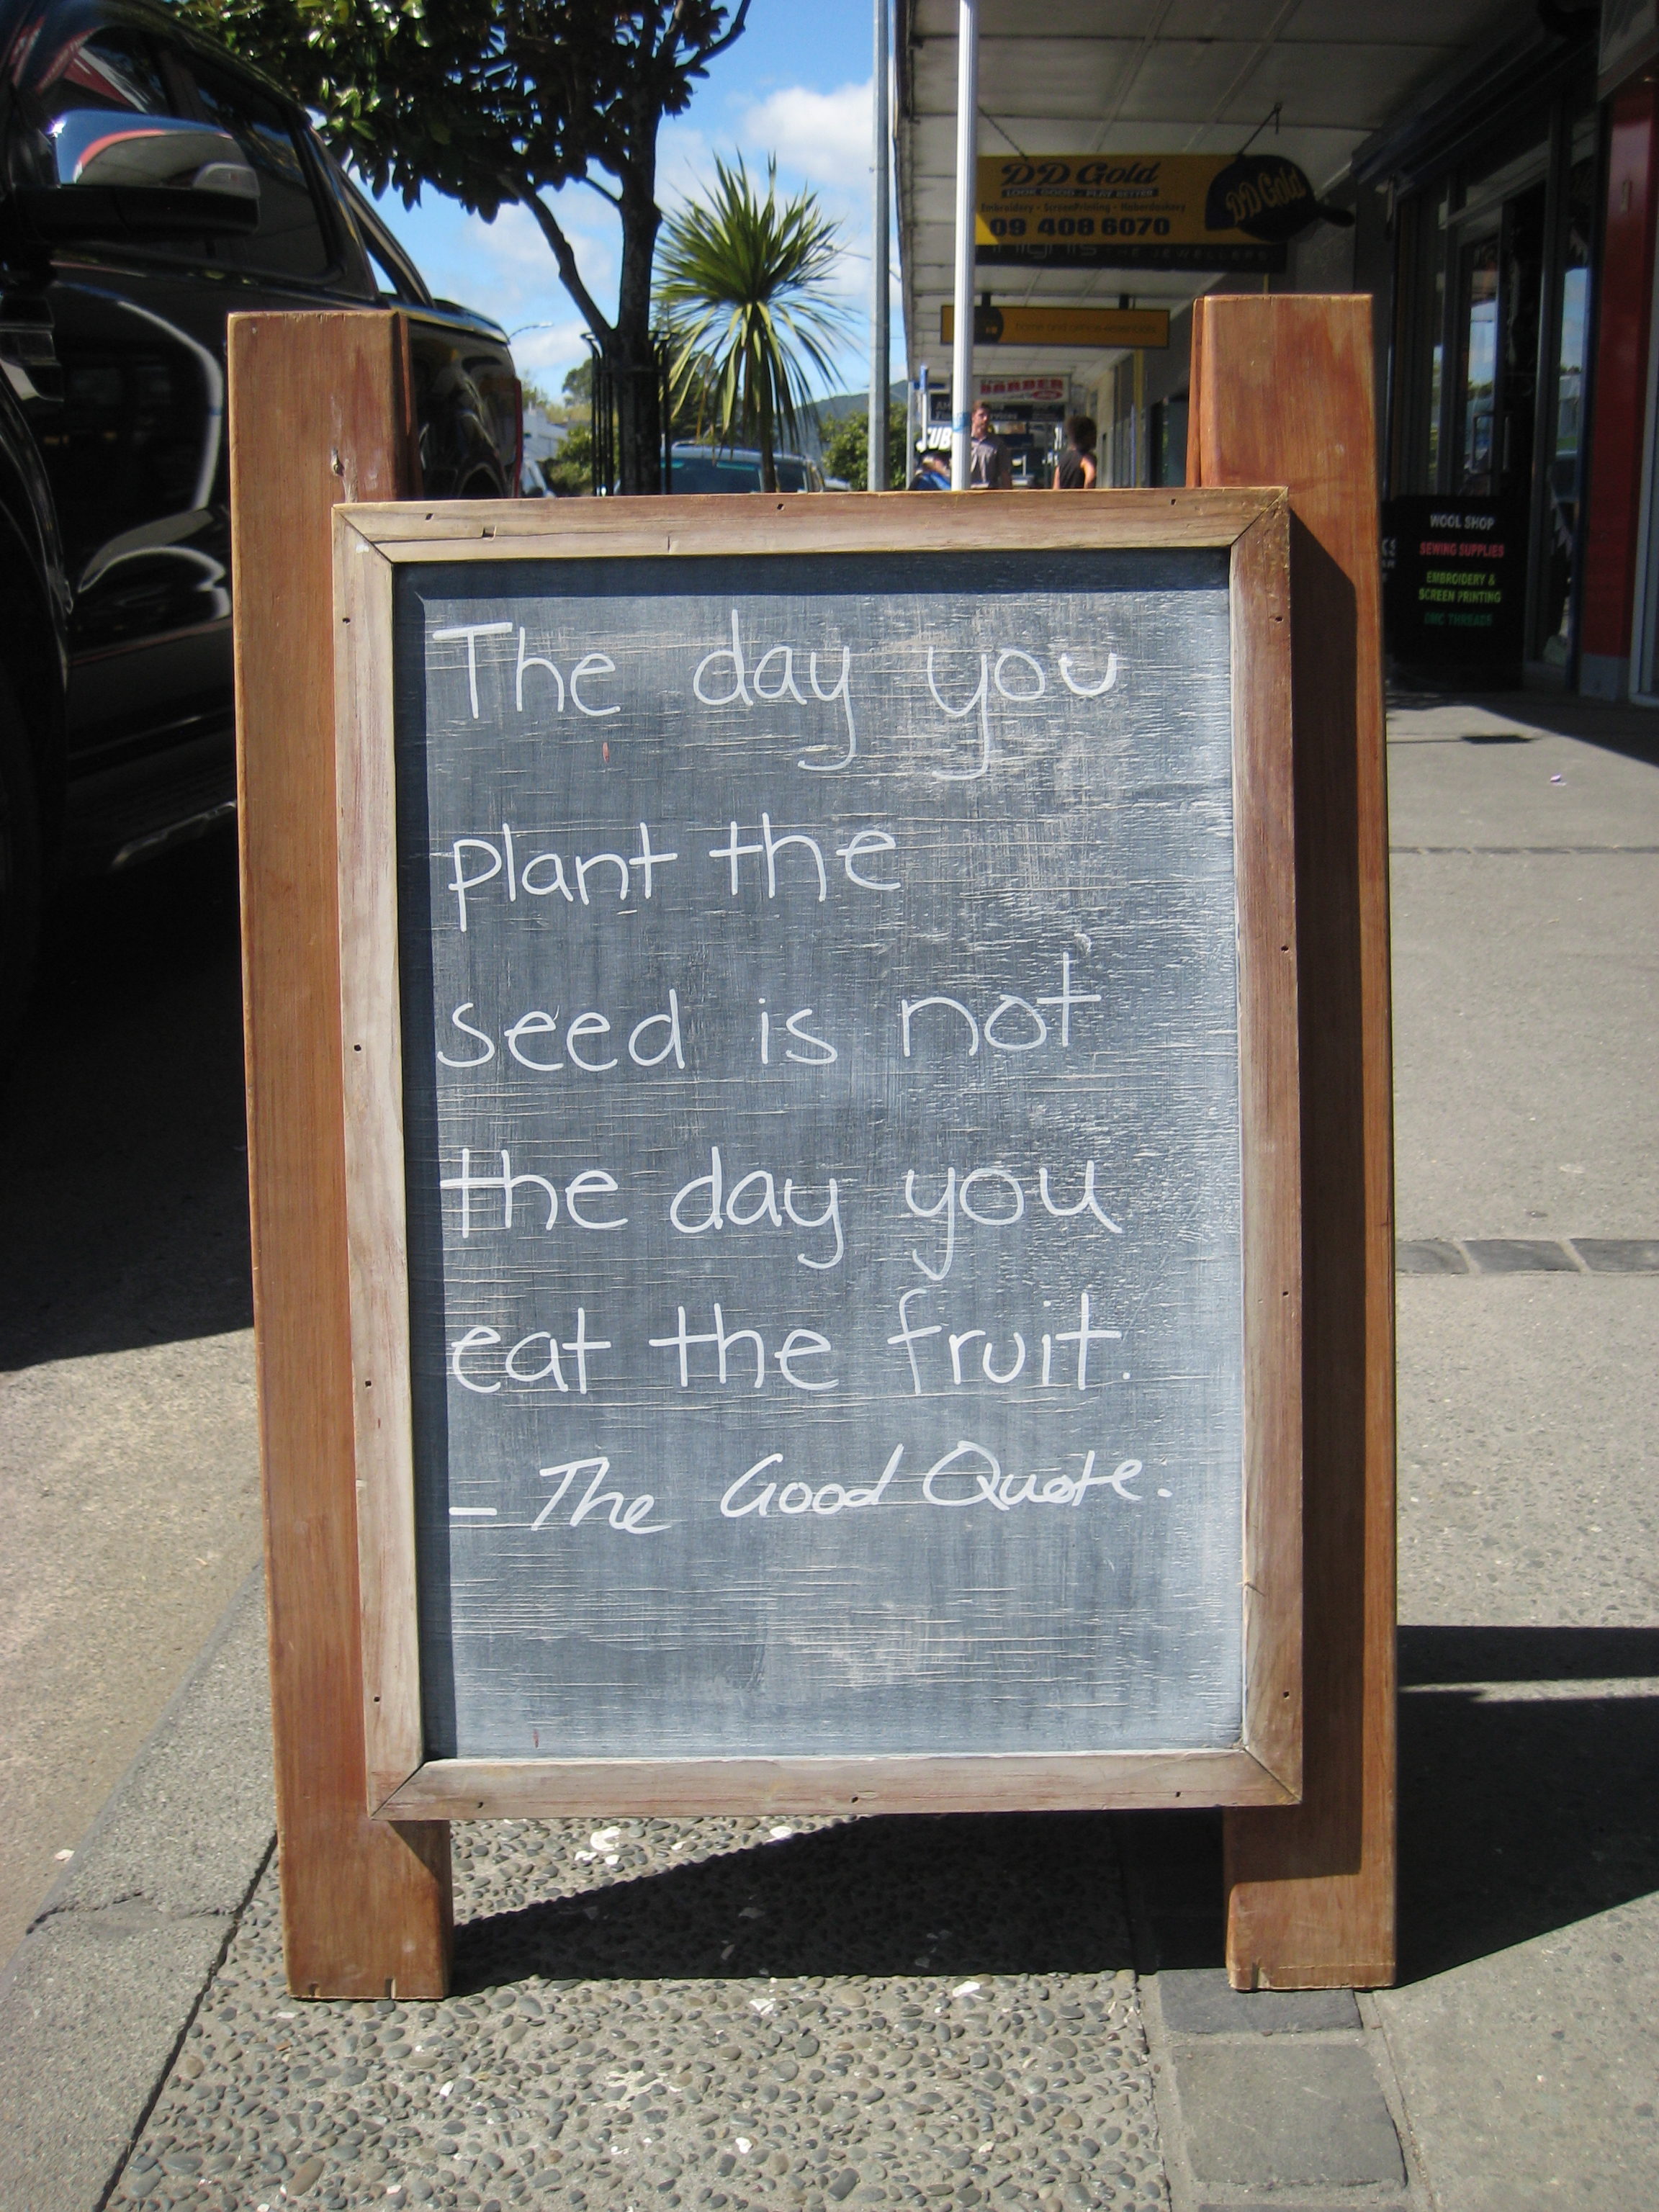 DD Gold
LOOK GOOD - PLAY BETTER
Embroidery - ScreenPrinting - Haberdashery
09 408 6070
DD Gold
THE JEWELLERS
BARBER
SUB
WOOL SHOP
SEWING SUPPLIES
EMBROIDERY &
SCREEN PRINTING
DMC THREADS
The day you
plant the
seed is not
the day you
eat the fruit.
- The Good Quote.